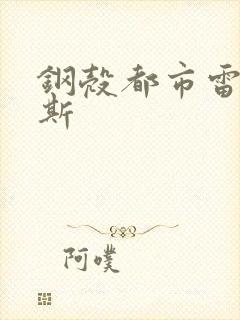 鋼殼都市雷
斯
阿噗